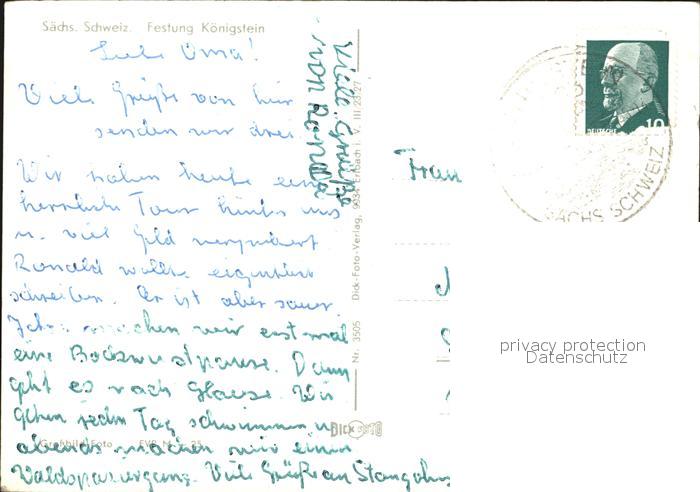 Sächs. Schweiz. Festung Königstein
Liebe Oma!
Viele Grüße von hier
senden wir drei.
Wir haben heute eine
herrliche Tour hinter uns
u. viel Geld verpulvert.
Ronald wollte eigentlich
schreiben. Er ist aber sauer.
machen wir erst mal
eine Bockwurstpause. Dann
geht es nach Hause. Wir
gehen jeden Tag schwimmen u.
abends machen wir einen
Waldspaziergang. Viele Grüße an
Viele Grüße
von Ronald
Großbild-Foto
Nr. 3505 Dick-Foto-Verlag, 9934 Erlbach i. V. III 23 27
DICK FOTO
Frau
10
SÄCHS SCHWEIZ
privacy protection
Datenschutz